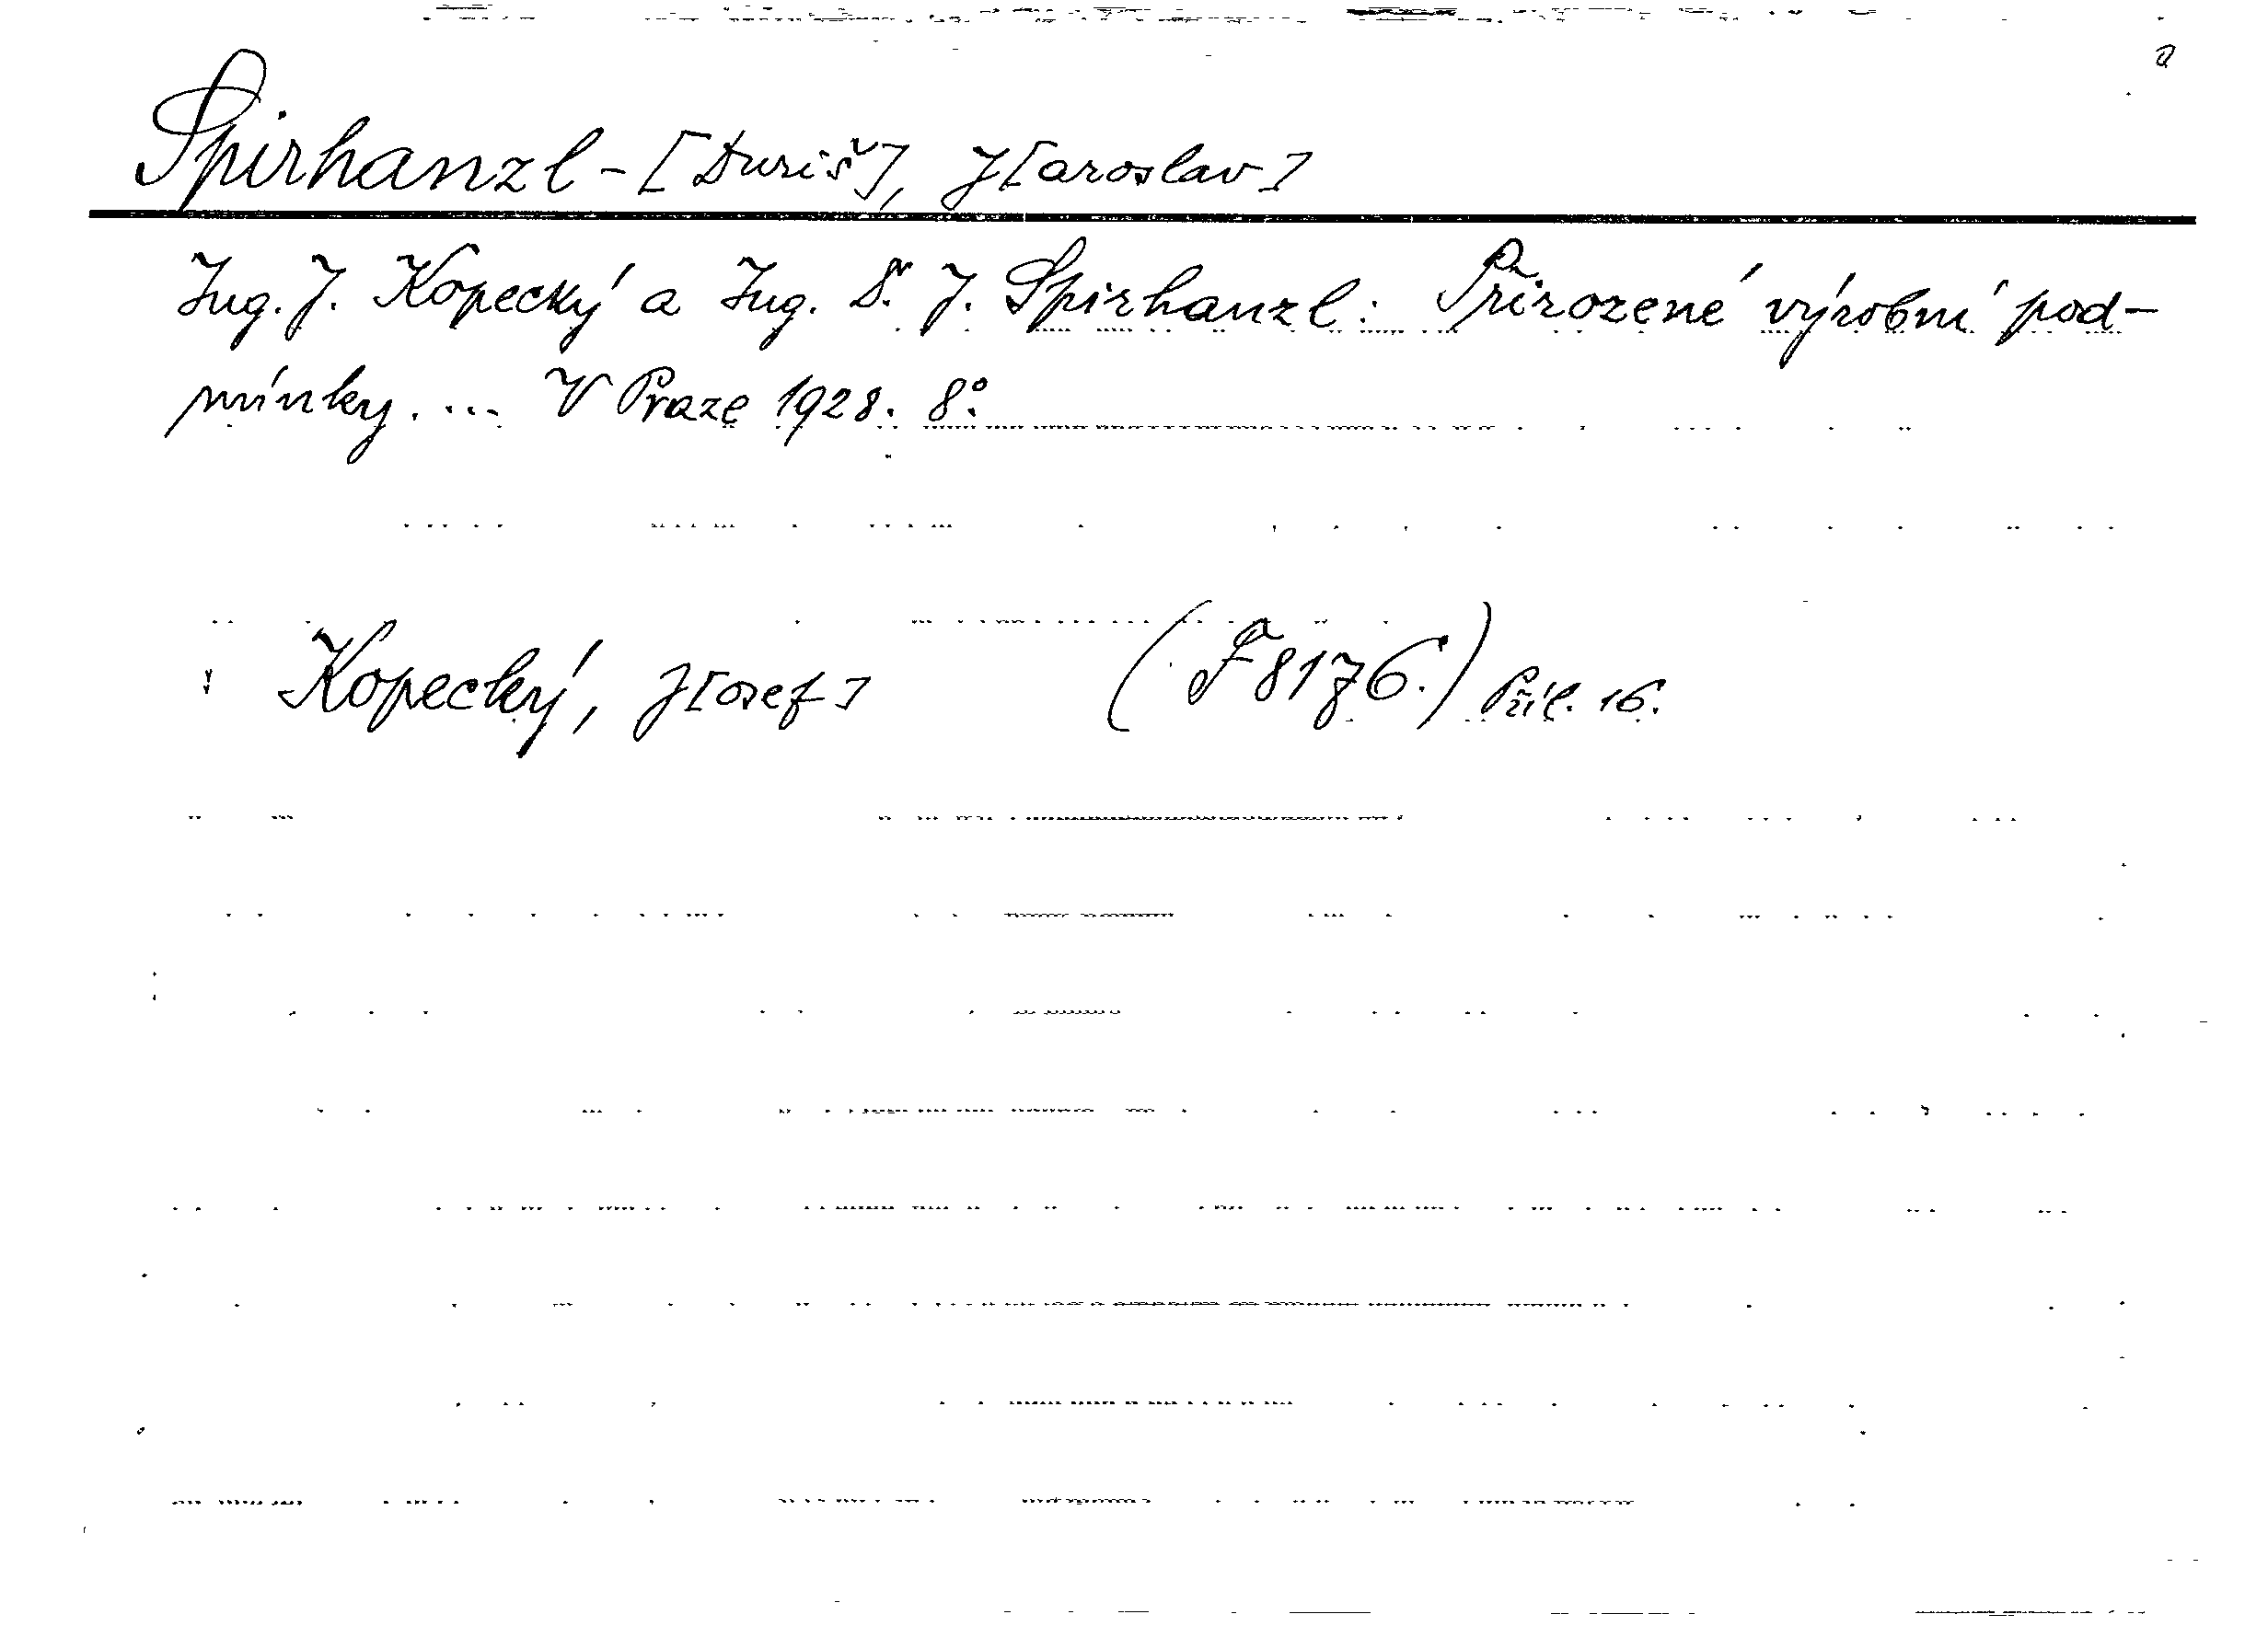 Spirhanzl-[Duriš], J[aroslav]
Ing. J. Kopecký a Ing. Dr. J. Spirhanzl: Přirozené výrobní pod-
mínky. ... V Praze 1928. 8°.
Kopecký, J[osef] (F 8176.) Příl. 16.